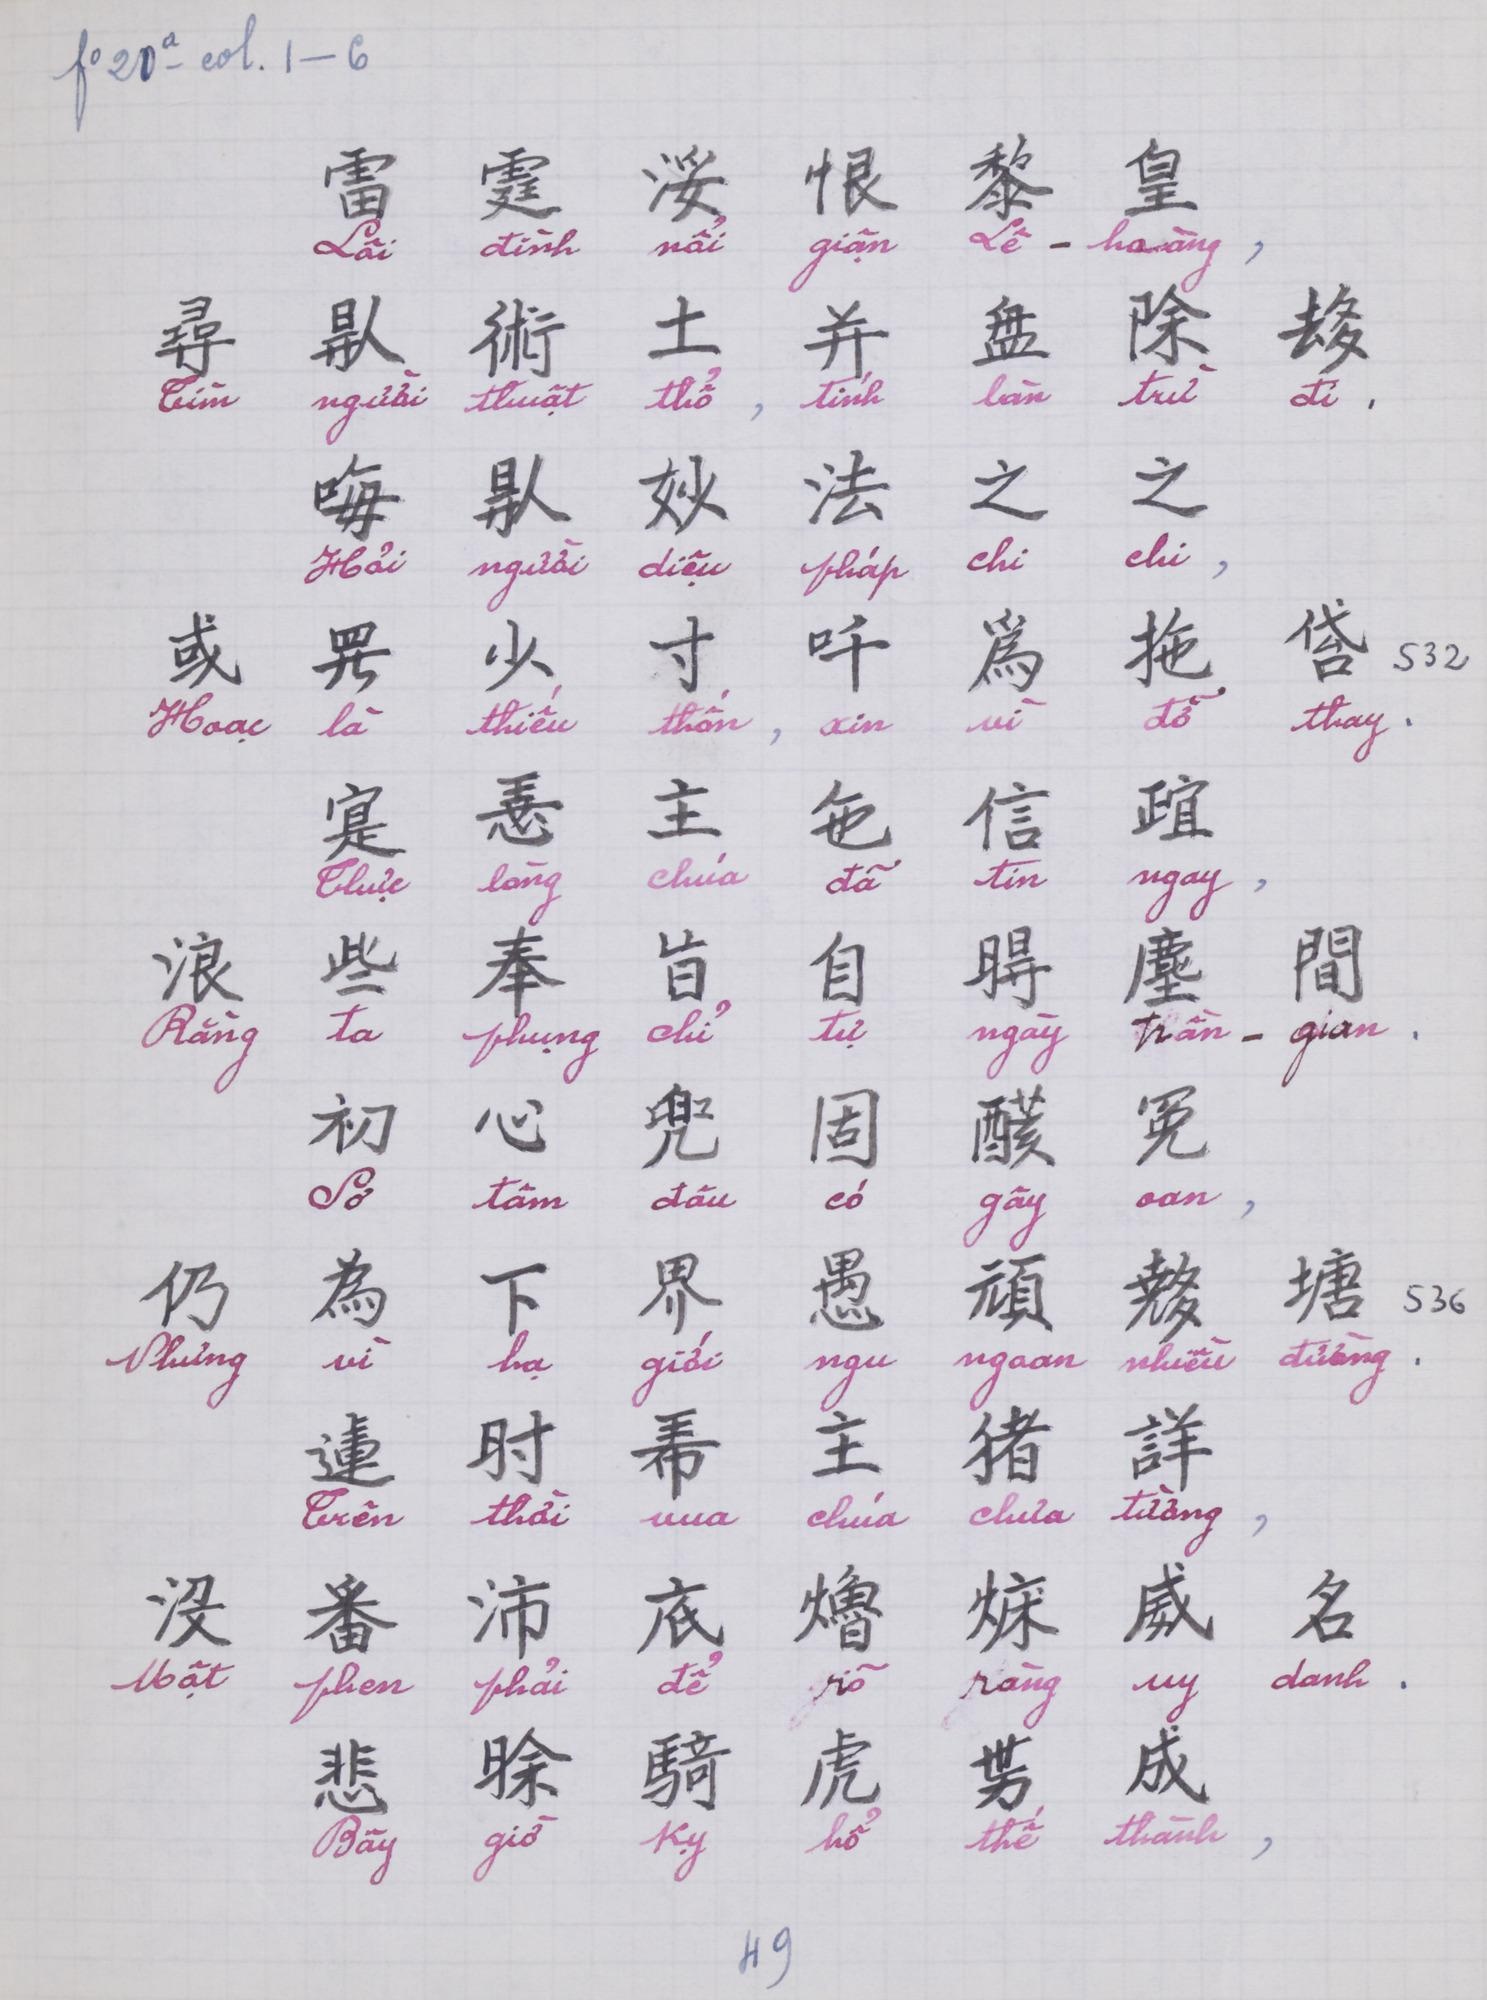 fº 20ª col. 1-6
雷 霆 浽 恨 黎 皇
Lôi đình nổi giận Lê-hoàng,
尋 𠊛 術 士 并 盘 除 𠫾
Tìm người thuật thổ, tính bàn trừ đi.
𠳨 𠊛 妙 法 之 之
Hỏi người diệu pháp chi chi,
或 𱺵 少 寸 吀 爲 拖 𠊝 532
Hoạc là thiếu thốn, xin vì đỡ thay.
寔 𢚸 主 㐌 信 𣦍
Thực lòng chúa đã tin ngay,
浪 些 奉 旨 自 𣈜 塵 間
Rằng ta phụng chỉ tự ngày trần-gian.
初 心 兜 固 𨢟 冤
Sơ tâm đâu có gây oan,
仍 為 下 界 愚 頑 𡗉 塘 536
Nhưng vì hạ giới ngu ngoan nhiều đường.
𨕭 时 𤤰 主 猪 詳
Trên thời vua chúa chưa tường,
沒 番 沛 底 𤏬 𤉜 威 名
Một phen phải để rõ ràng uy danh.
悲 𣇞 騎 虎 势 成
Bây giờ kỵ hổ thế thành,
49